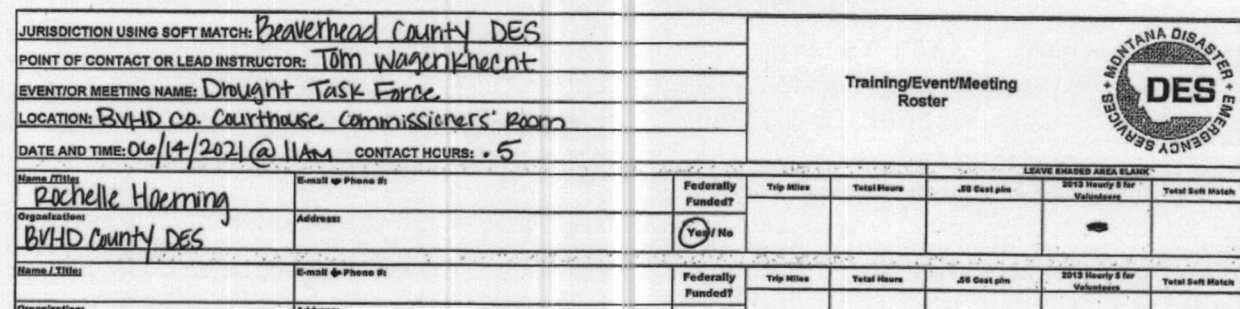 JURISDICTION USING SOFT MATCH: Beaverhead County DES
POINT OF CONTACT OR LEAD INSTRUCTOR: Tom Wagenknecht
EVENT/OR MEETING NAME: Drought Task Force
LOCATION: BVHD Co. Courthouse Commissioners' Room
DATE AND TIME: 06/14/2021 @ 11AM CONTACT HOURS: .5
Training/Event/Meeting
Roster
MONTANA DISASTER + EMERGENCY SERVICES +
DES
LEAVE SHADED AREA BLANK
Name /Title: E-mail Phone #: Federally Funded? Trip Miles Total Hours .56 Cost p/m 2013 Hourly $ for Volunteers Total Soft Match
Rochelle Hoerning
Organization: Address: Yes/ No
BVHD County DES
Name / Title: E-mail Phone #: Federally Funded? Trip Miles Total Hours .56 Cost p/m 2013 Hourly $ for Volunteers Total Soft Match
Organization: Address: